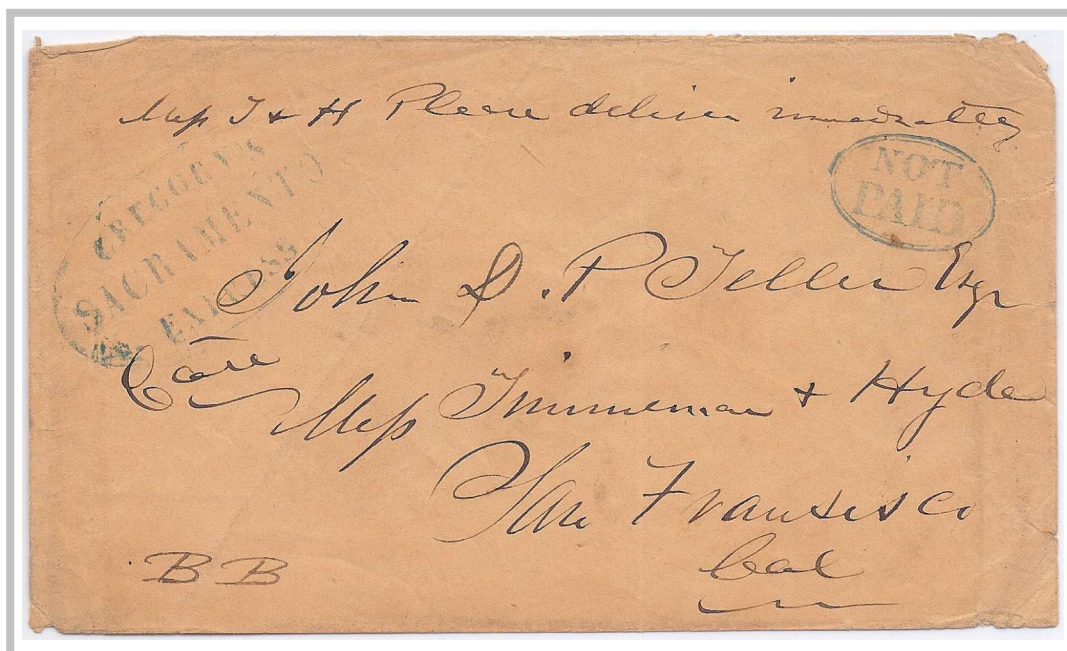 Mess I & H Please deliver immediately
NOT
PAID
SACRAMENTO
EXPRESS
John D. P Teller Esqr
Care
Mess Timmerman & Hyde
San Fransisco
Cal
B B